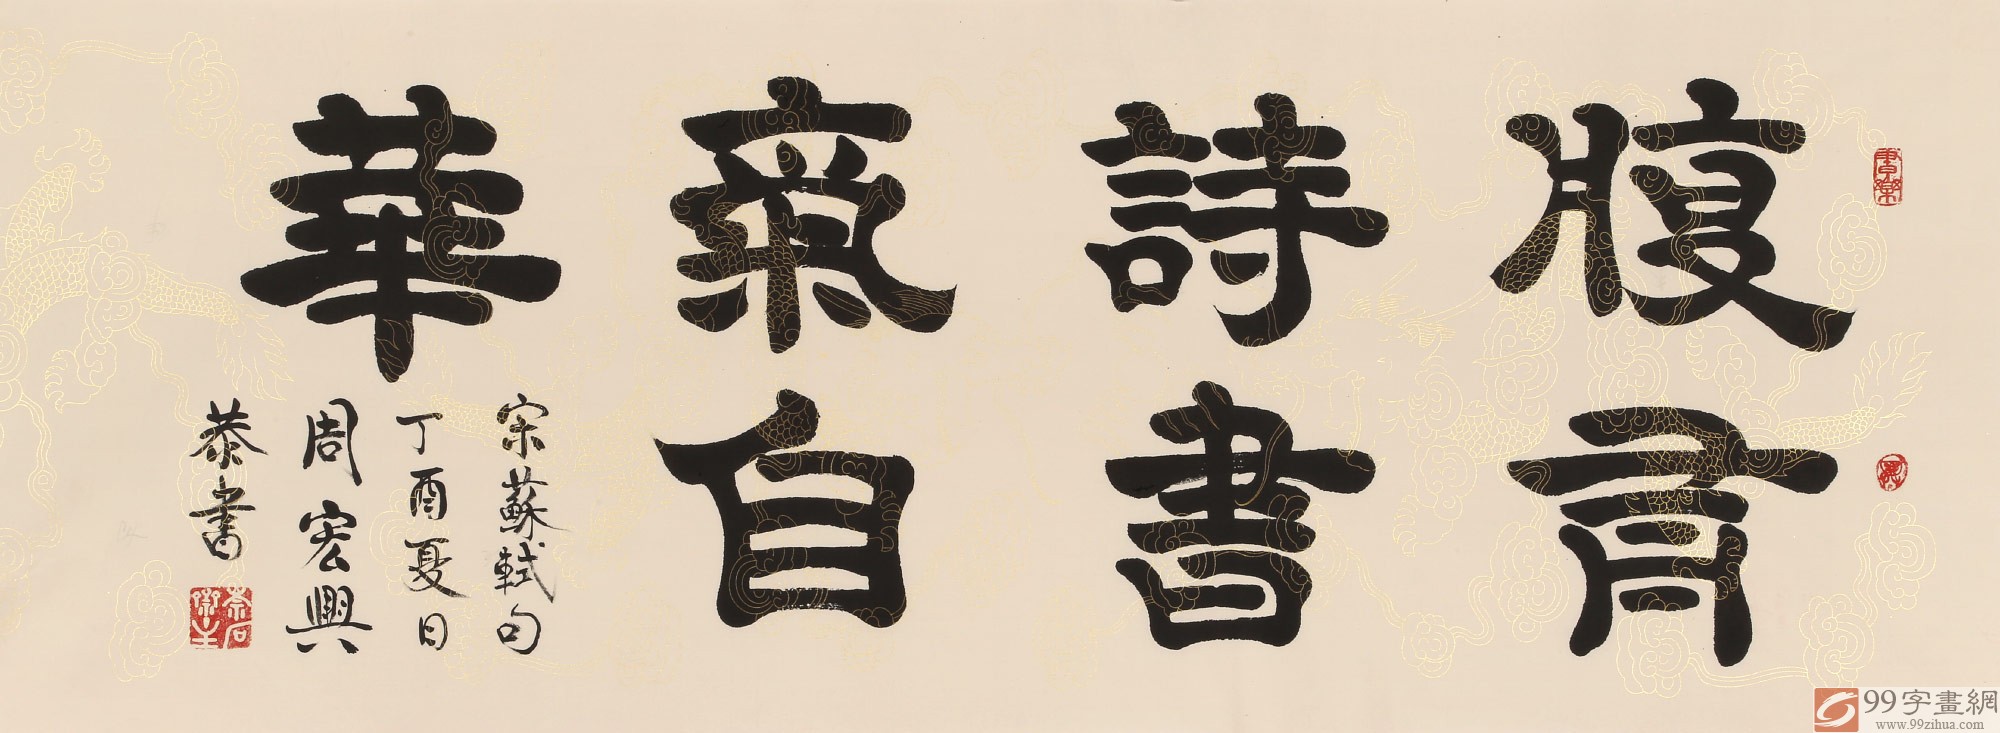 腹有
詩書
氣自
華
宋蘇軾句
丁酉夏日
周宏興
恭書
99字畫網
www.99zihua.com